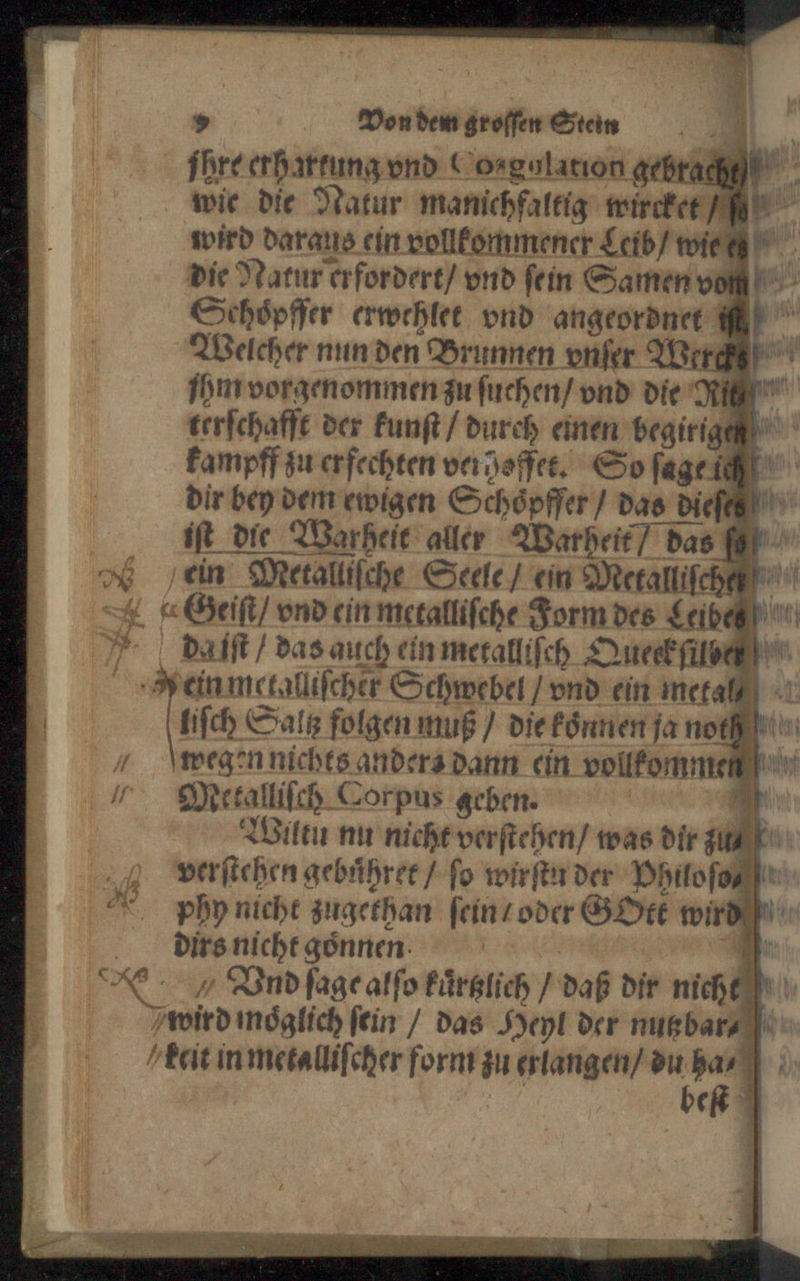 Von dem grossen Stein
jhre erhartung vnd Coagulation gebracht/
wie die Natur manichfaltig wircket /
wird daraus ein vollkommener Leib / wie es
die Natur erfordert / vnd sein Samen vom
Schöpffer erwehlet vnd angeordnet ist
Welcher nun den Brunnen vnser Wercks
jhm vorgenommen zu suchen / vnd die Rit
terschafft der kunst / durch einen begirigen
kampff zu erfechten verhoffet. So sage ich
dir bey dem ewigen Schöpffer / das dieses
ist die Warheit aller Warheit / das so
ein Metallische Seele / ein Metallischer
Geist / vnd ein metallische Form des Leibes
da ist / das auch ein metallisch Quecksilber
ein metallischer Schwebel / vnd ein metal⸗
lisch Saltz folgen muß / die können ja noth
wegen nichts anders dann ein vollkommen
Metallisch Corpus geben.
Wiltu nu nicht verstehen / was dir zu⸗
verstehen gebühret / so wirstu der Philoso⸗
phy nicht zugethan sein / oder GOtt wird
dirs nicht gönnen.
Vnd sage also kürtzlich / daß dir nicht
wird möglich sein / das Heyl der nutzbar⸗
keit in metallischer form zu erlangen / du ha⸗
best